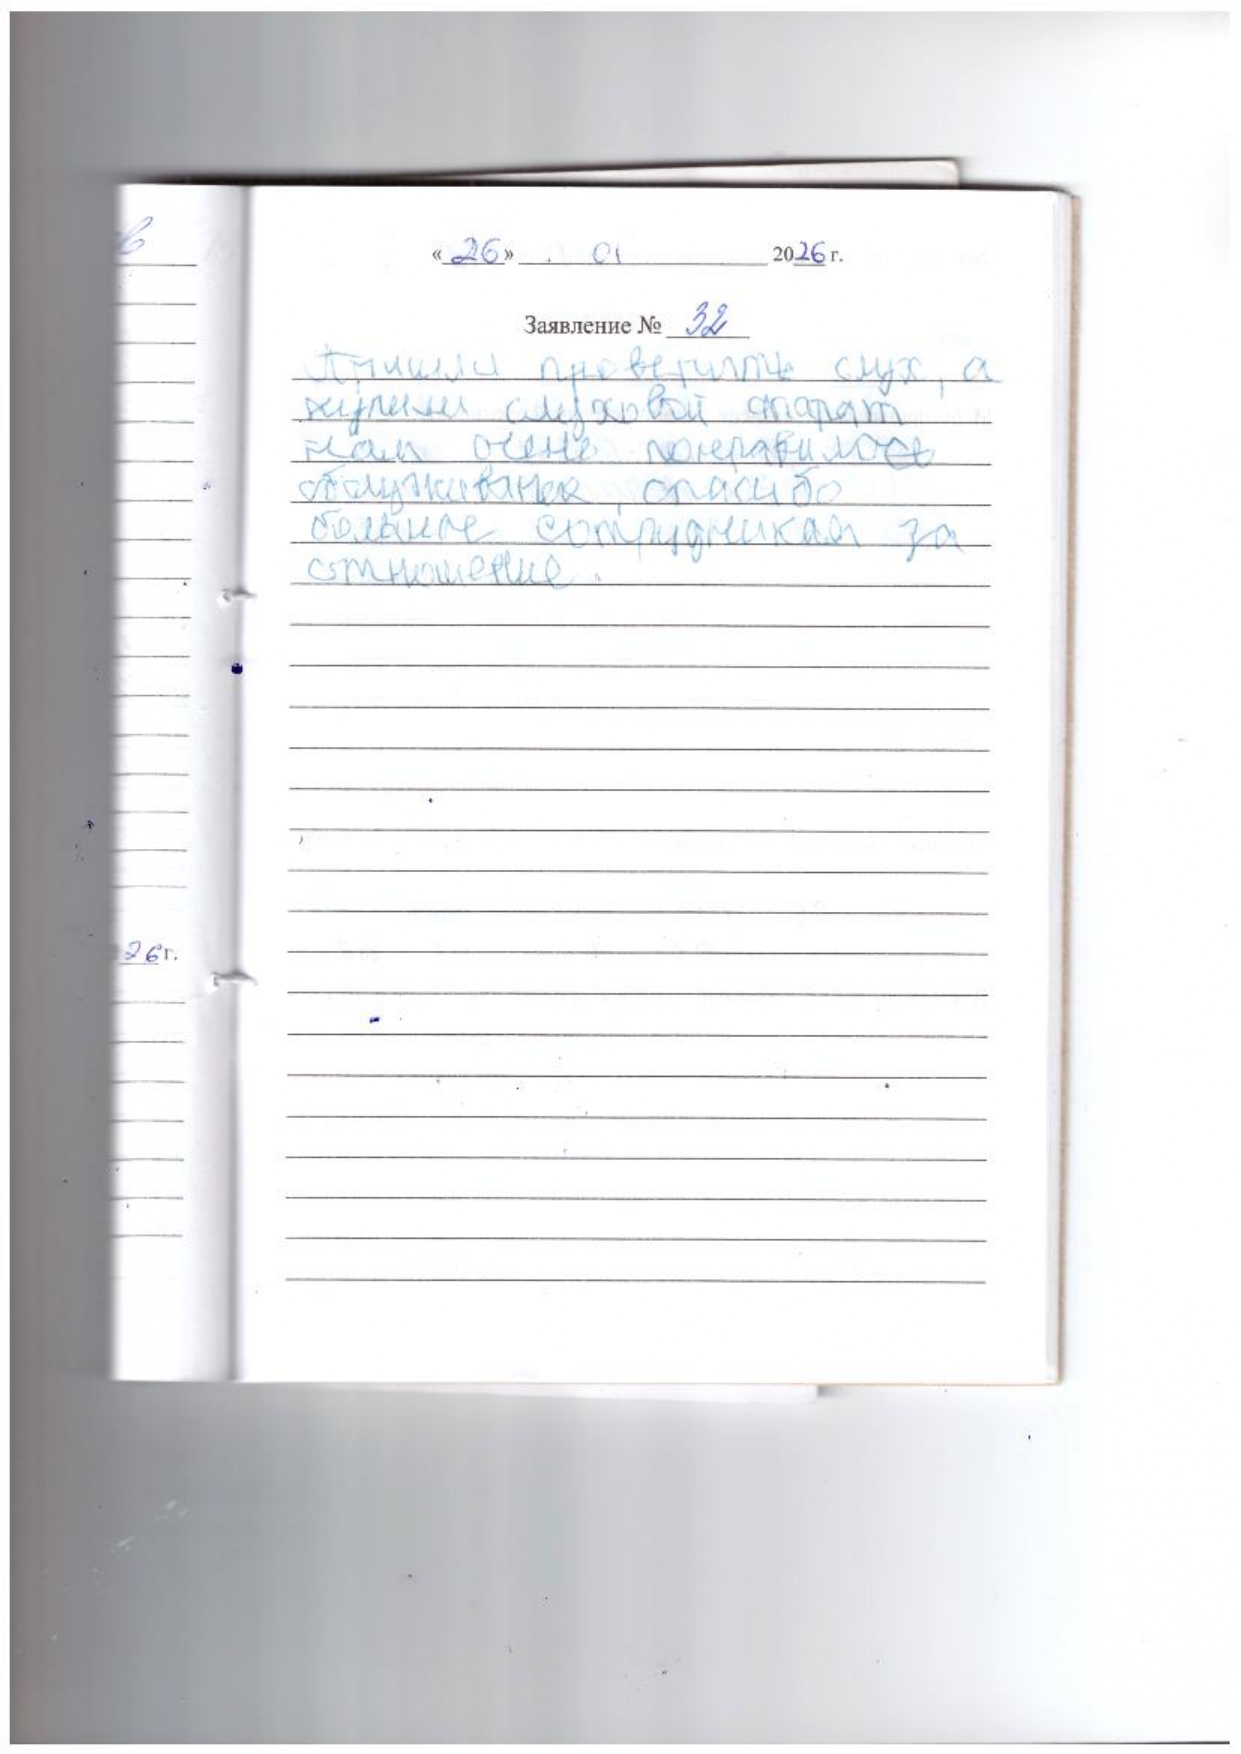 « 26 » 01 2026 г.
Заявление № 32
Пришли проверить слух, а
купили слуховой апарат
нам очень понравилось
обслуживание, спасибо
большое сотрудникам за
отношение.
26 г.